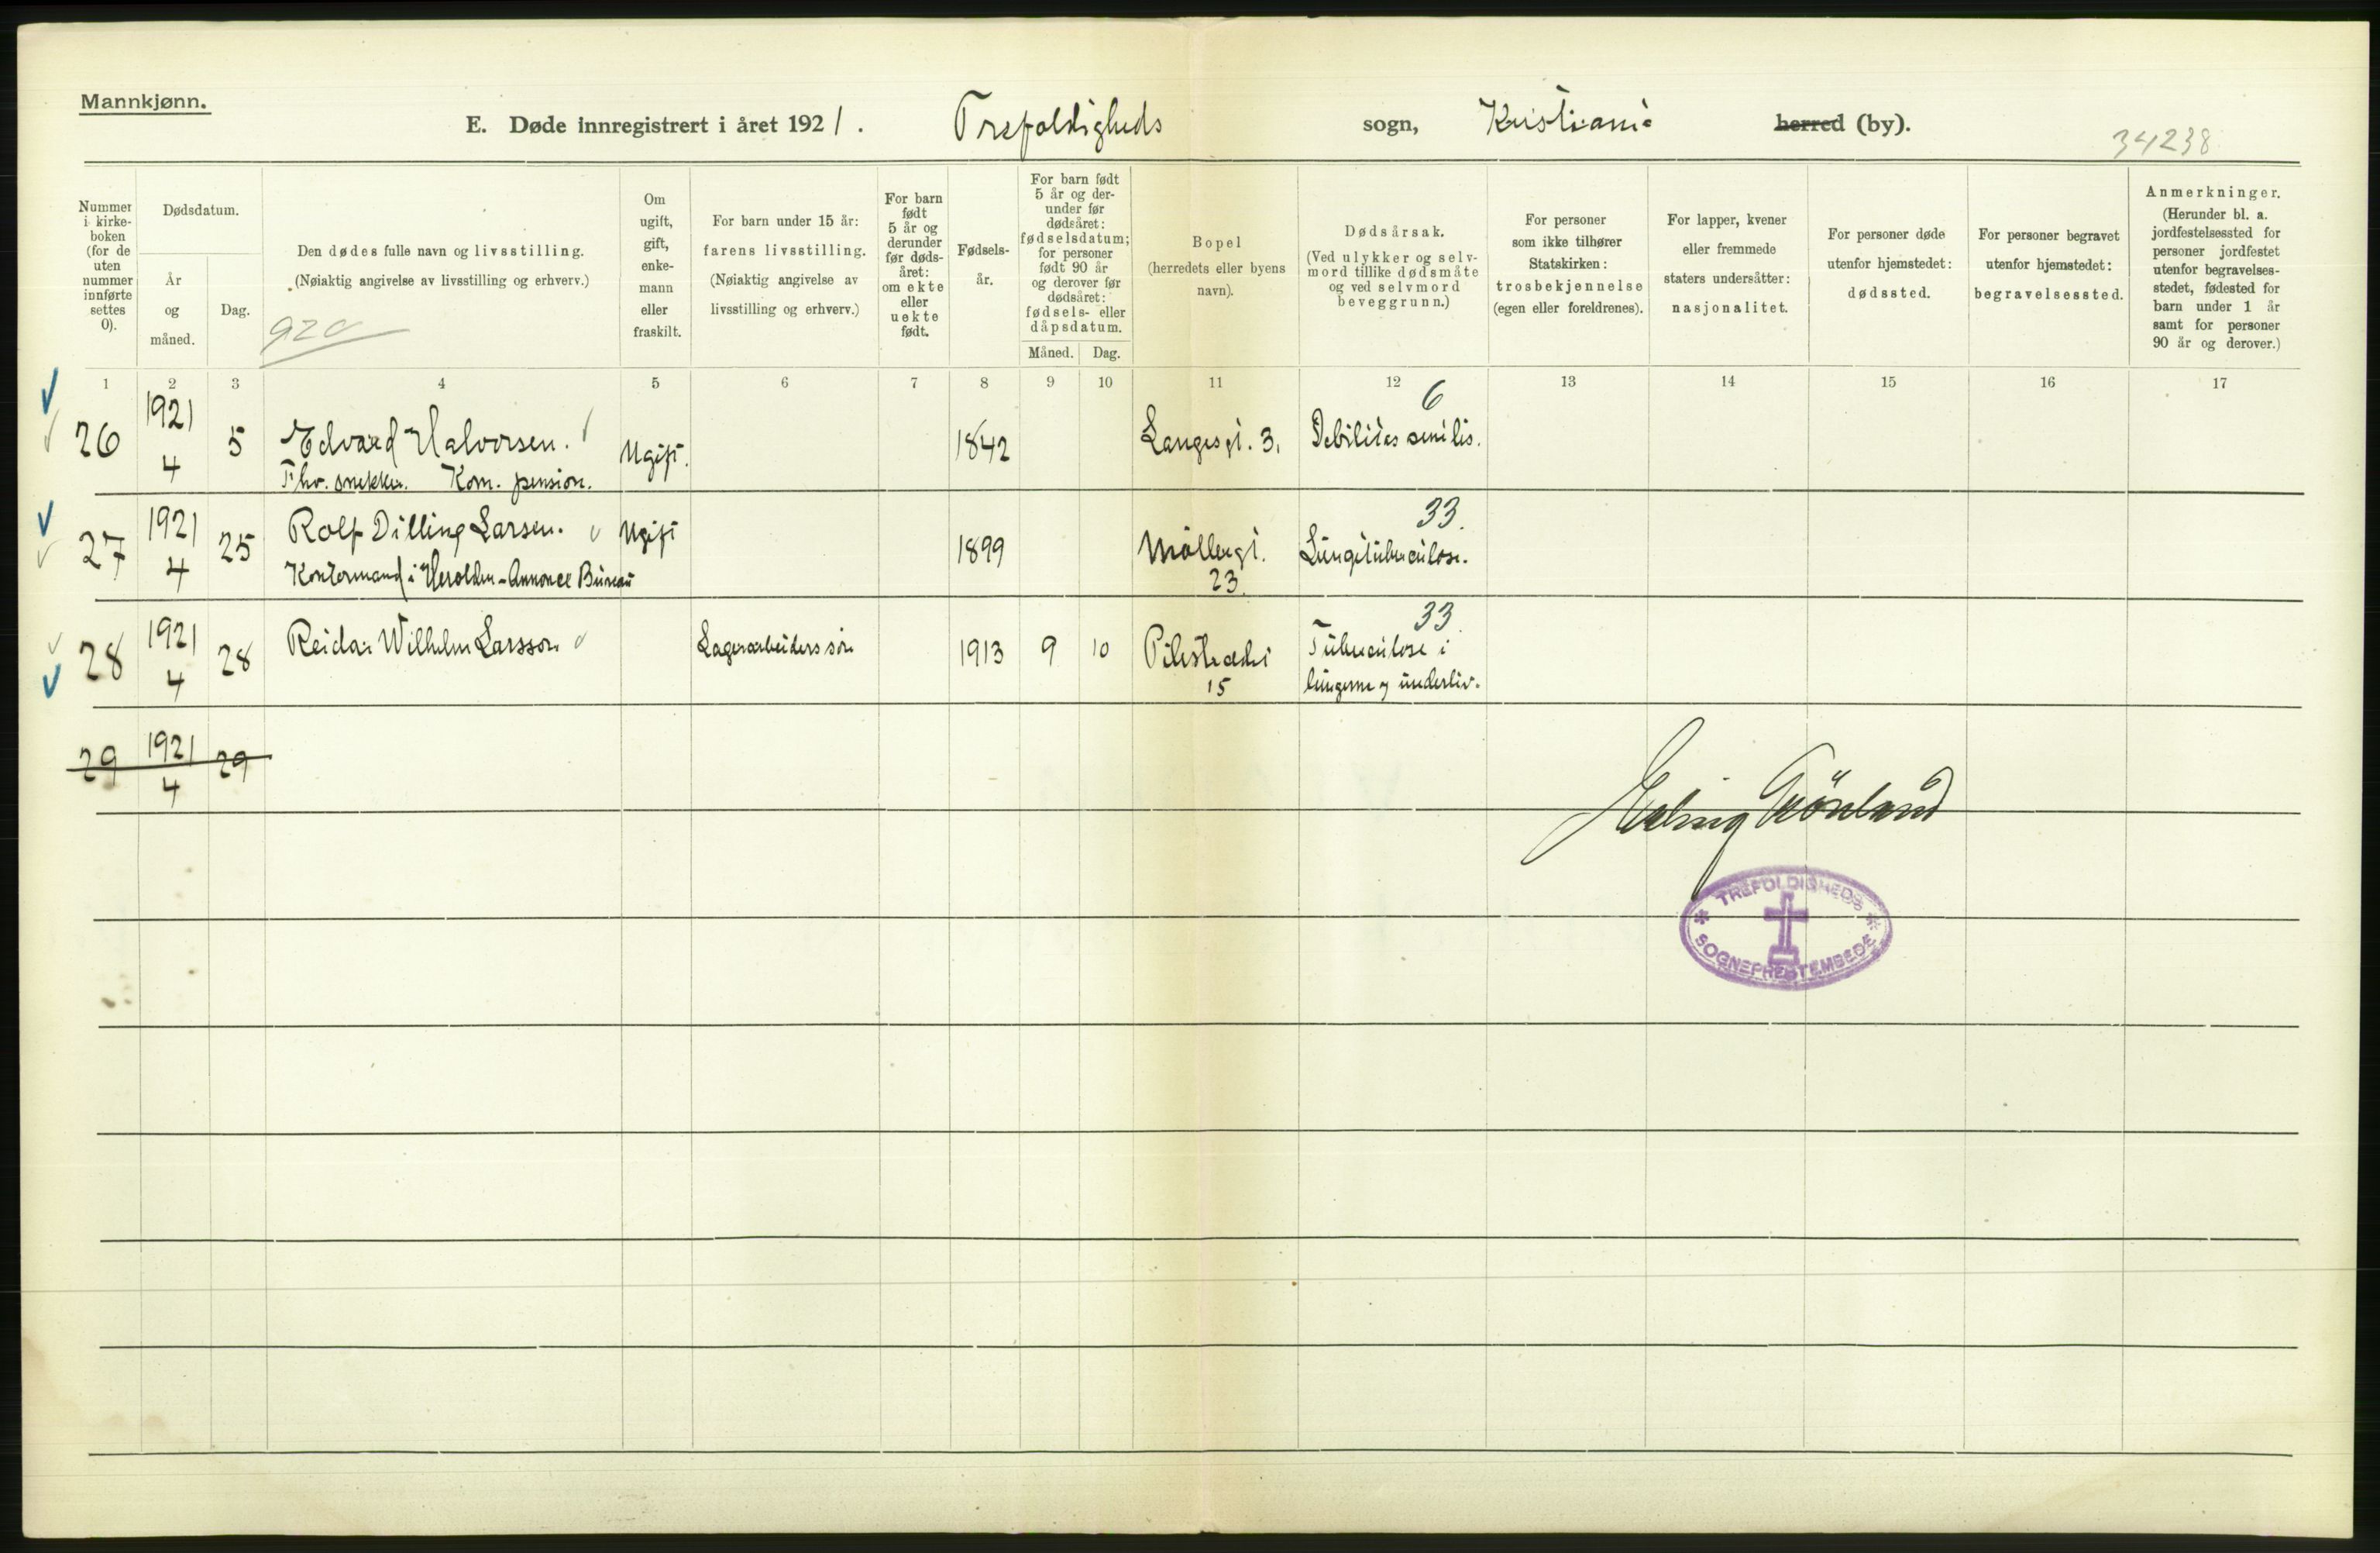 Mannkjønn.
E. Døde innregistrert i året 1921. Trefoldigheds sogn, Kristiania herred (by).
34238
Nummer i kirke-boken (for de uten nummer innførte settes 0).
Dødsdatum.
År og måned.
Dag.
Den dødes fulle navn og livsstilling.
(Nøiaktig angivelse av livsstilling og erhverv.)
Om ugift, gift, enke-mann eller fraskilt.
For barn under 15 år:
farens livsstilling.
(Nøiaktig angivelse av livsstilling og erhverv.)
For barn født 5 år og derunder før døds-året: om ekte eller uekte født.
Fødsels-år.
For barn født 5 år og der-under før dødsåret: fødselsdatum; for personer født 90 år og derover før dødsåret: fødsels- eller dåpsdatum.
Måned. Dag.
Bopel
(herredets eller byens navn).
Dødsårsak.
(Ved ulykker og selv-mord tillike dødsmåte og ved selvmord beveggrunn.)
For personer som ikke tilhører Statskirken:
trosbekjennelse
(egen eller foreldrenes).
For lapper, kvener eller fremmede staters undersåtter:
nasjonalitet.
For personer døde utenfor hjemstedet:
dødssted.
For personer begravet utenfor hjemstedet:
begravelsessted.
Anmerkninger.
(Herunder bl. a. jordfestelsessted for personer jordfestet utenfor begravelses-stedet, fødested for barn under 1 år samt for personer 90 år og derover.)
1 2 3 4 5 6 7 8 9 10 11 12 13 14 15 16 17
26 1921 4 5 Edvard Halvorsen. Ugift. 1842 Langesgt. 3. 6 Debilitas senilis.
Fhv. snekker. Kom. pension.
27 1921 4 25 Rolf Dilling Larsen. Ugift 1899 Møllergt. 23. 33. Lungetuberculose.
Kontormand i Herolden-Annonce Bureau
28 1921 4 28 Reidar Wilhelm Larsson Lagerarbeiders søn 1913 9 10 Pilestrædet 15 33. Tuberculose i
lungerne og underliv.
29 1921 4 29
Erling Grönland
TREFOLDIGHEDS
SOGNEPRESTEMBEDE